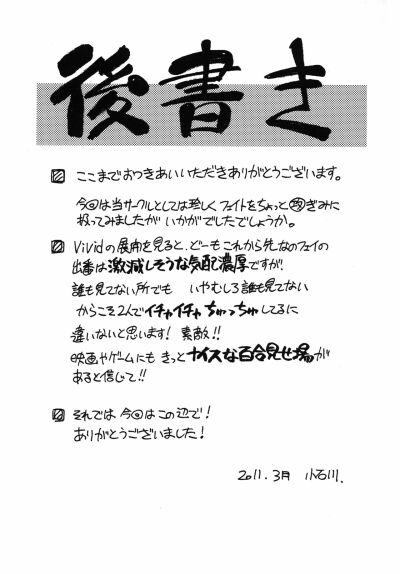 後書き
ここまでおつきあいいただきありがとうございます。
今回は当サークルとしては珍しくフェイトをちょっと㋳ぎみに
扱ってみましたがいかがでしたでしょうか。
Vividの展開を見ると、どーもこれから先なのフェイの
出番は激減しそうな気配濃厚ですが!
誰も見てない所でも いやむしろ誰も見てない
からこそ2人でイチャイチャちゅっちゅしてるに
違いないと思います! 素敵!!
映画やゲームにもきっとナイスな百合見せ場が
あると信じて!!
それでは今回はこの辺で!
ありがとうございました!
2011.3月 小石川.